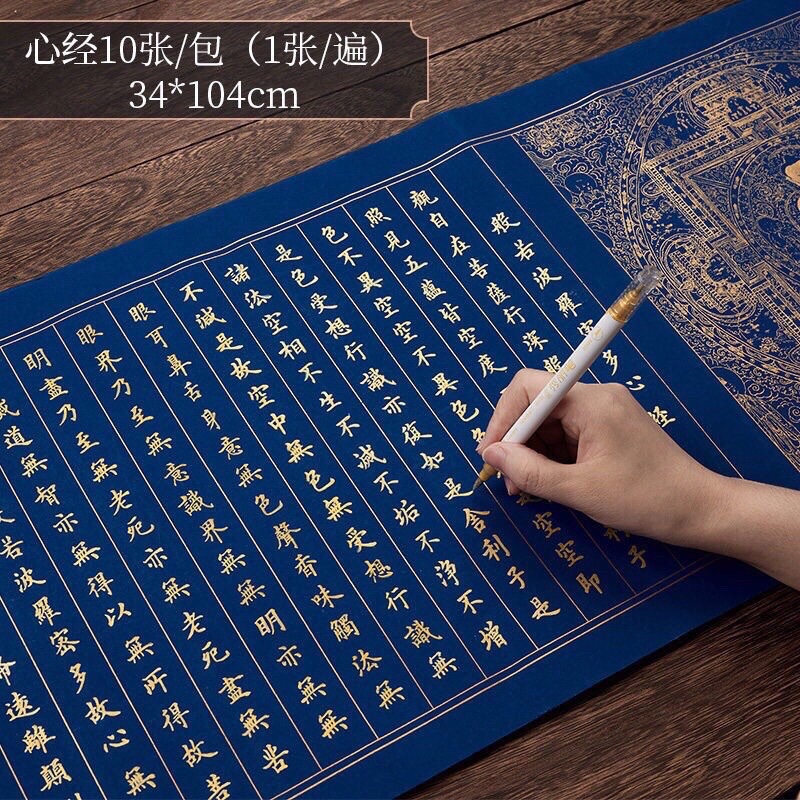 心经10张/包（1张/遍）
34*104cm
般若波羅蜜多心經
觀自在菩薩行深般
子
照見五蘊皆空度
色不異空空不異色色
空空即
是色受想行識亦復如是舍利子是
諸法空相不生不滅不垢不淨不增
不減是故空中無色無受想行識無
眼耳鼻舌身意無色聲香味觸法無
眼界乃至無意識界無無明亦無無
明盡乃至無老死亦無老死盡無苦
滅道無智亦無得以無所得故菩
若波羅蜜多故心無
遠離顛